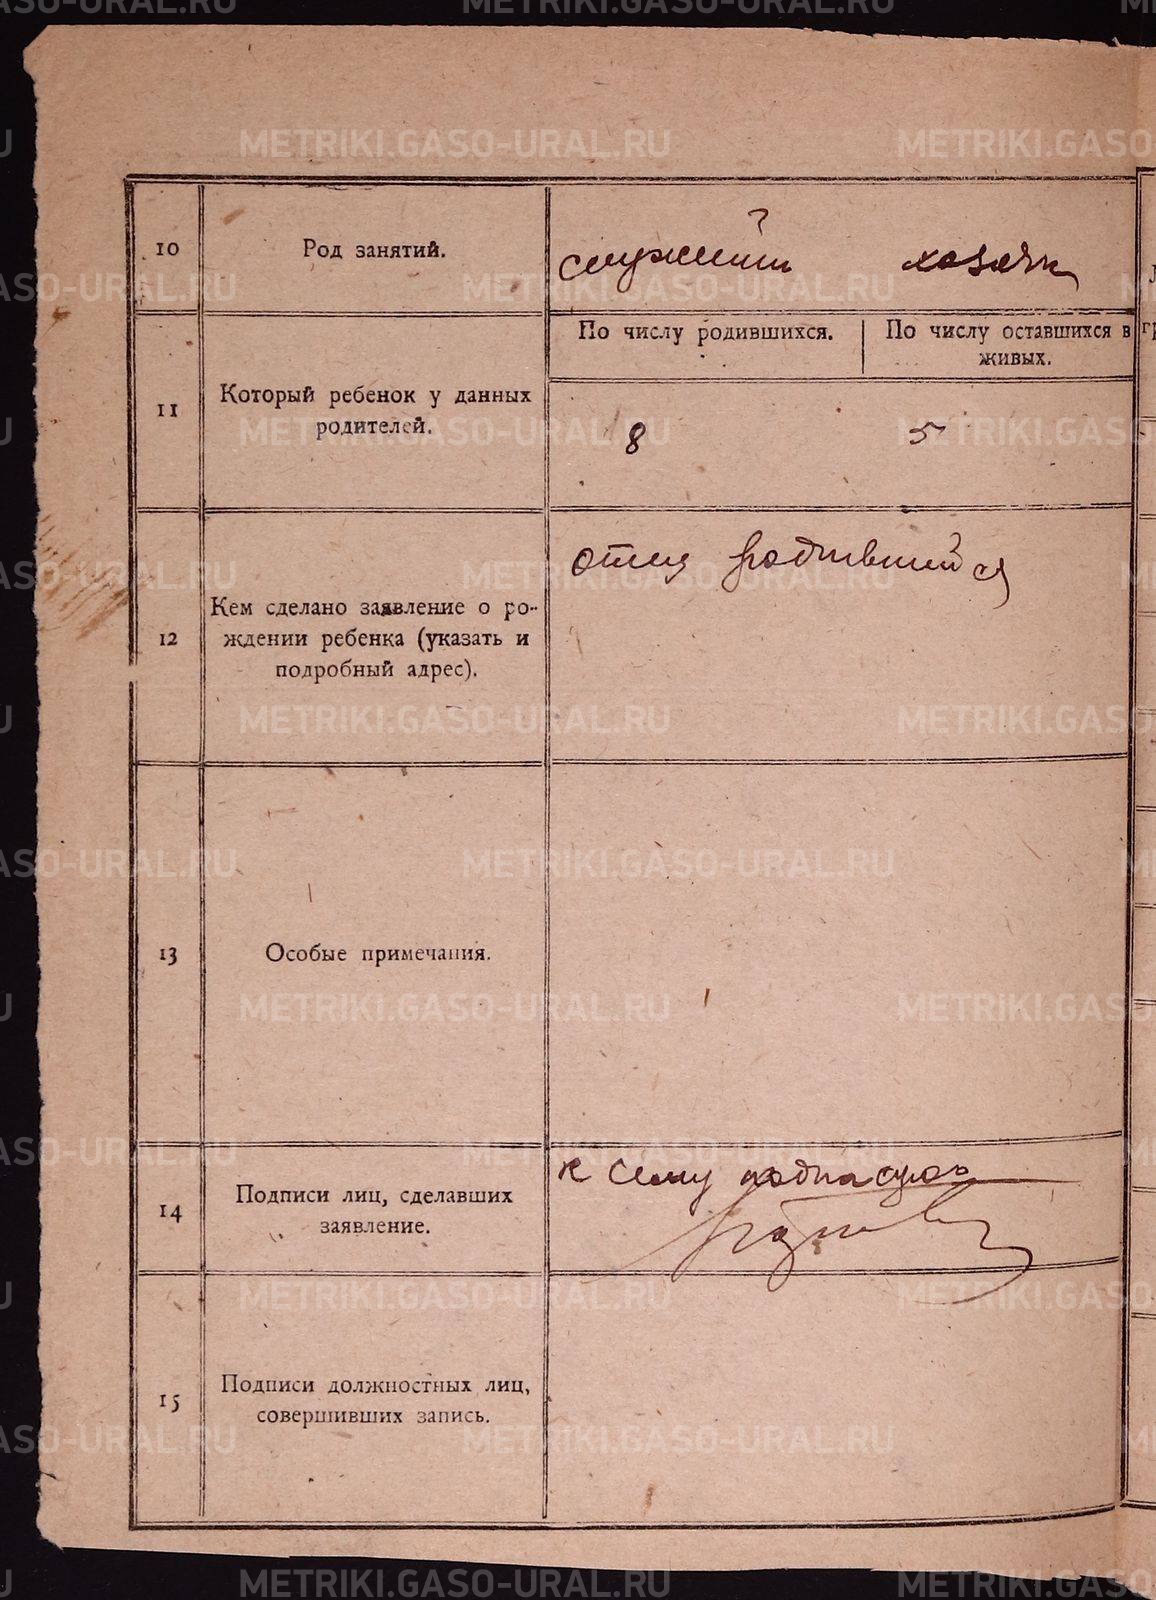 METRIKI.GASO-URAL.RU
10 Род занятий. служащий хозяйк
По числу родившихся. По числу оставшихся в
живых.
11 Который ребенок у данных
родителей.
8 5
отец родившийся
12 Кем сделано заявление о ро-
ждении ребенка (указать и
подробный адрес).
13 Особые примечания.
к сему подпасуюсь
14 Подписи лиц, сделавших
заявление.
15 Подписи должностных лиц,
совершивших запись.